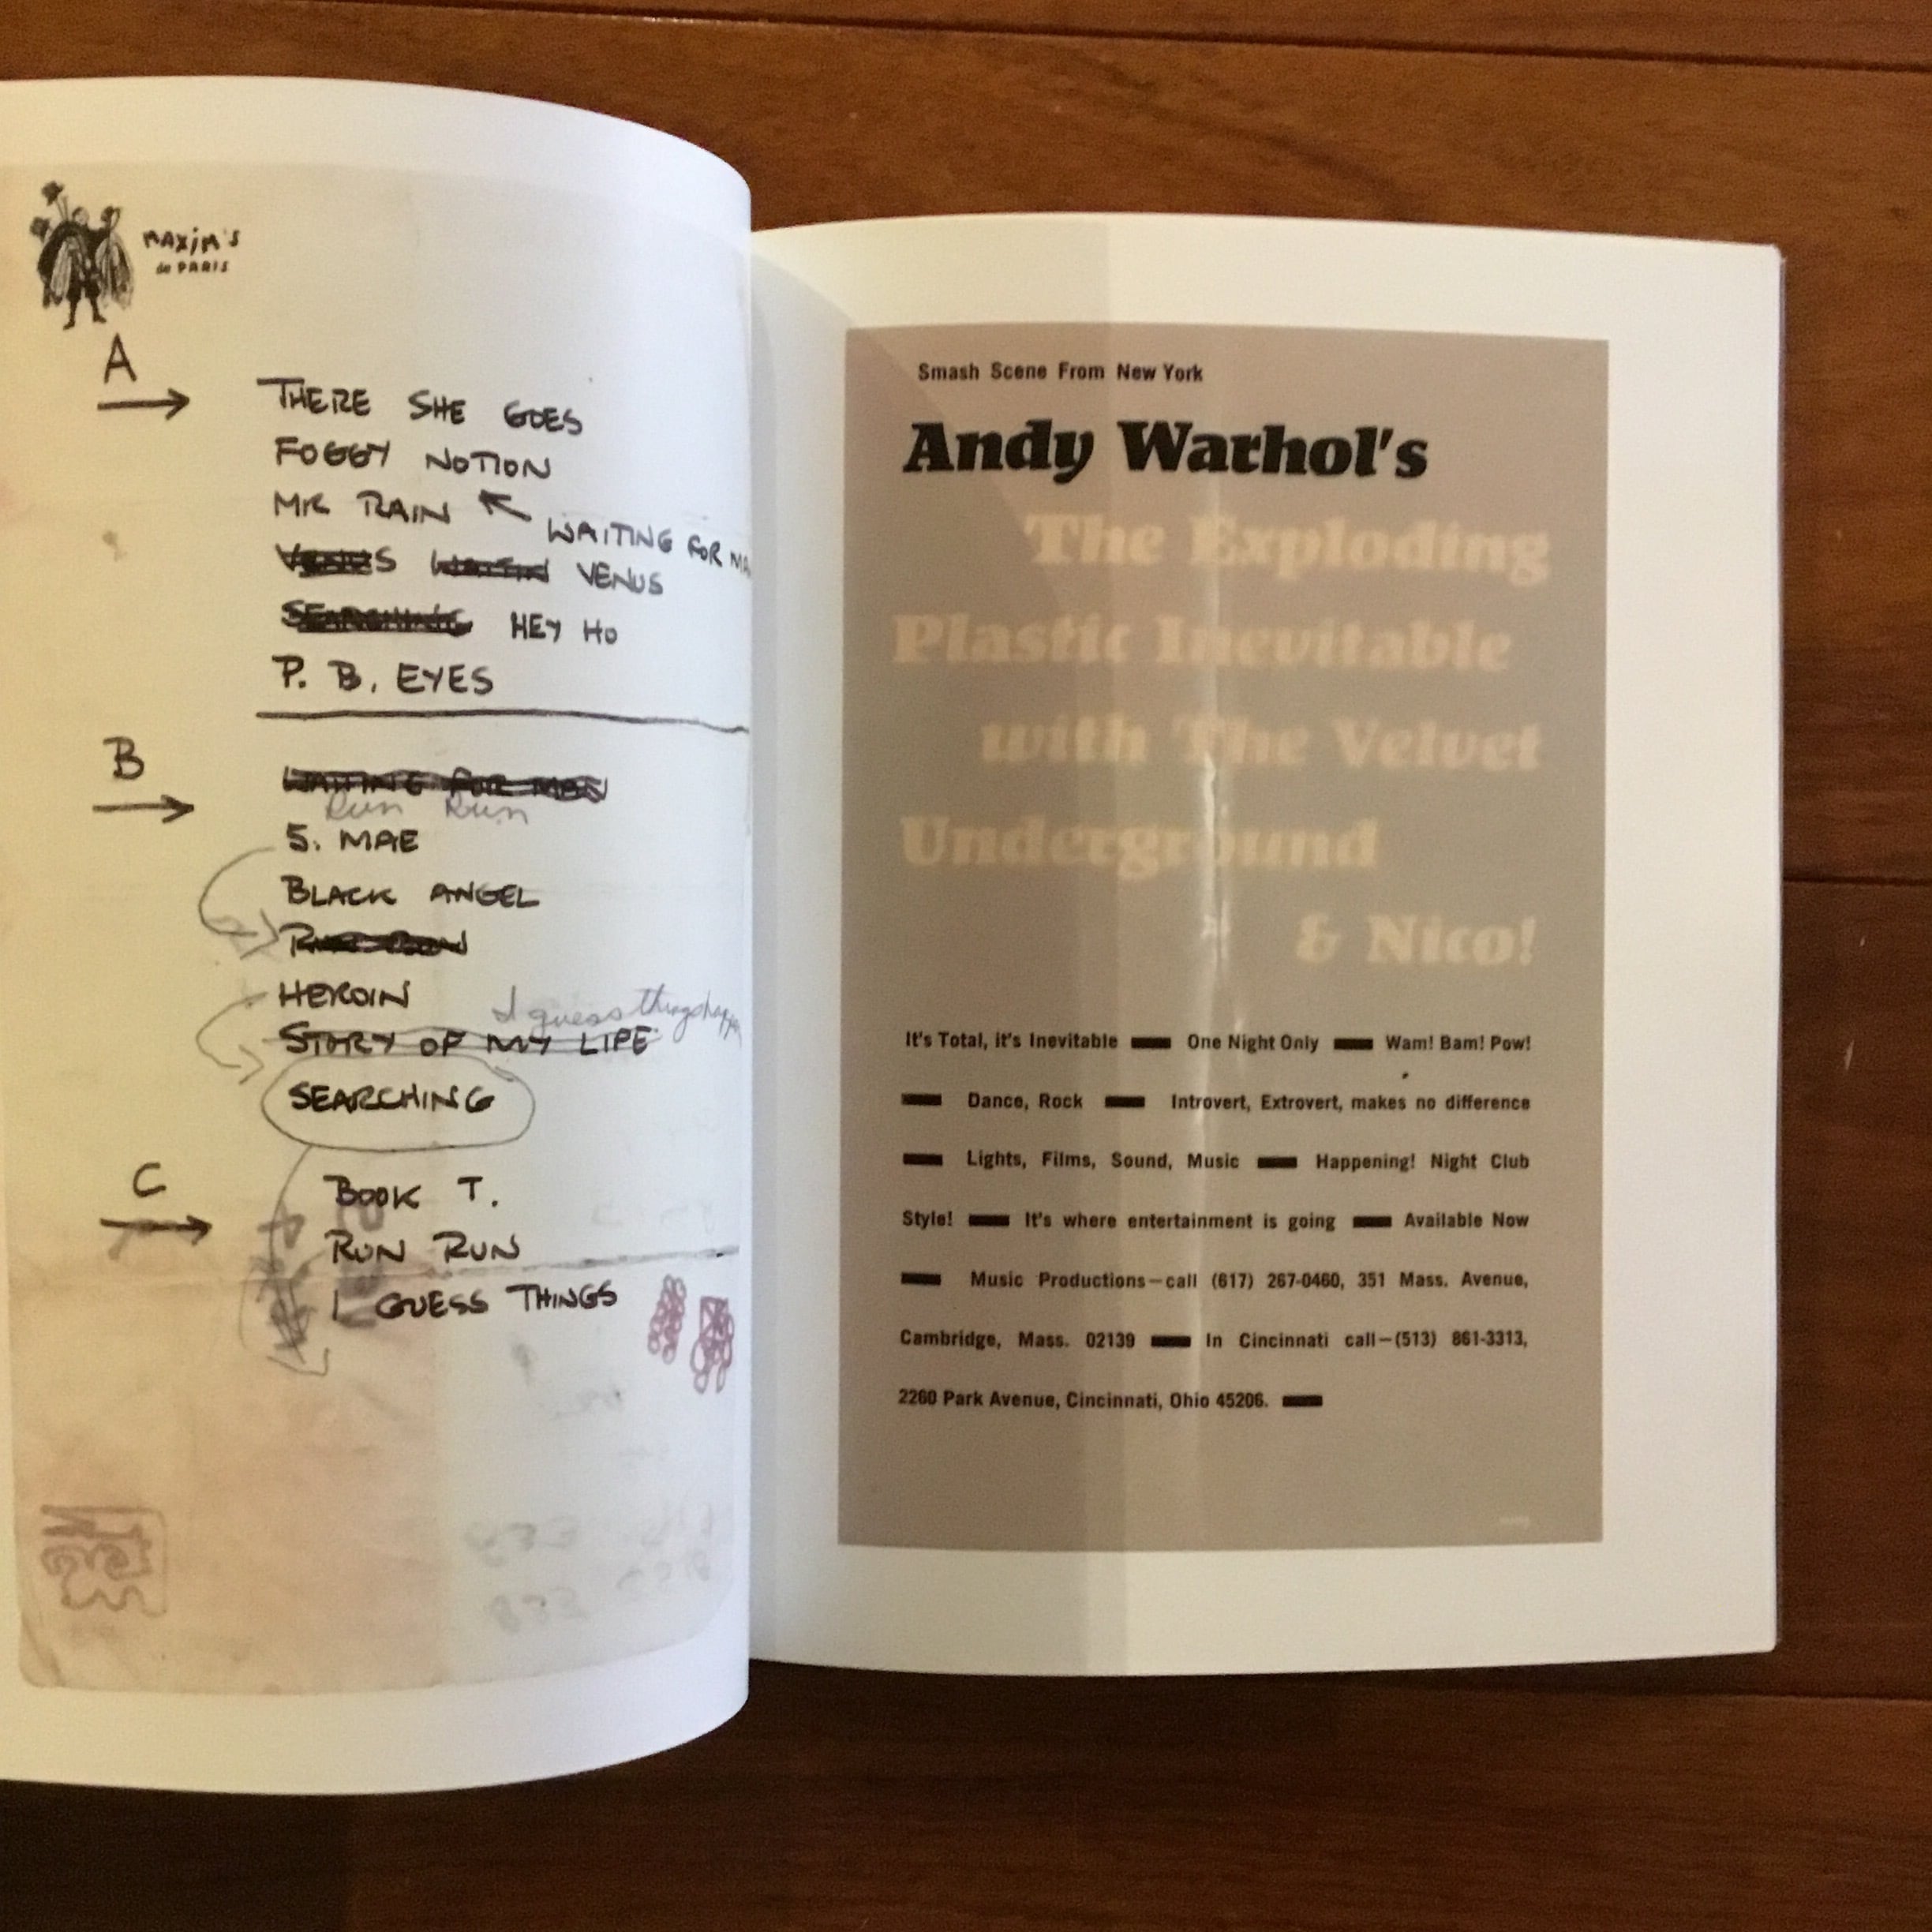 MAXIM'S
de PARIS
A
THERE SHE GOES
FOGGY NOTION
MR RAIN
WAITING FOR MA
VENUS VENUS
SEARCHING HEY HO
P. B. EYES
B
WAITING FOR MAN
Run Run
S. MAE
BLACK ANGEL
RUN RUN
HEROIN
I guess things happen
STORY OF MY LIFE
SEARCHING
C
BOOK T.
RUN RUN
I GUESS THINGS
Smash Scene From New York
Andy Warhol's
The Exploding
Plastic Inevitable
with The Velvet
Underground
& Nico!
It's Total, it's Inevitable — One Night Only — Wam! Bam! Pow!
— Dance, Rock — Introvert, Extrovert, makes no difference
— Lights, Films, Sound, Music — Happening! Night Club
Style! — It's where entertainment is going — Available Now
— Music Productions—call (617) 267-0460, 351 Mass. Avenue,
Cambridge, Mass. 02139 — In Cincinnati call—(513) 861-3313,
2260 Park Avenue, Cincinnati, Ohio 45206. —